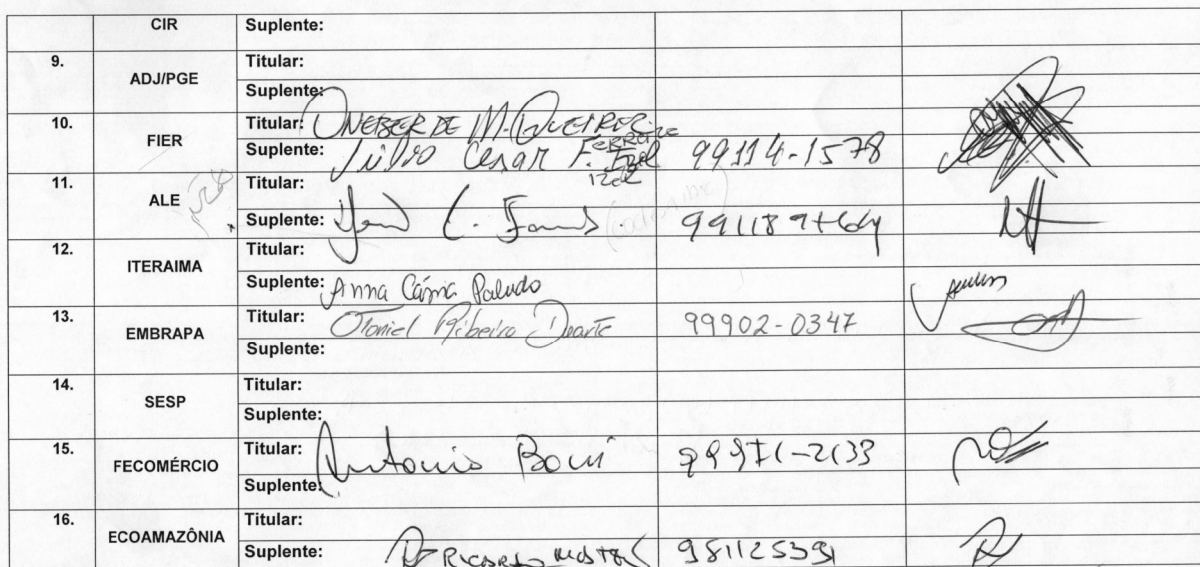 CIR Suplente:
9. ADJ/PGE Titular:
Suplente:
10. FIER Titular: ONEBER DE M. QUEIROZ
Suplente: Júlio Cesar F. 99114-1578
11. ALE Titular:
Suplente: C. 99118
12. ITERAIMA Titular:
Suplente: Anna Cásma Paludo
13. EMBRAPA Titular: Otoniel Ribeiro Duarte 99902-0347
Suplente:
14. SESP Titular:
Suplente:
15. FECOMÉRCIO Titular: Antonio 99971-2133
Suplente:
16. ECOAMAZÔNIA Titular:
Suplente: RICARDO 981125391